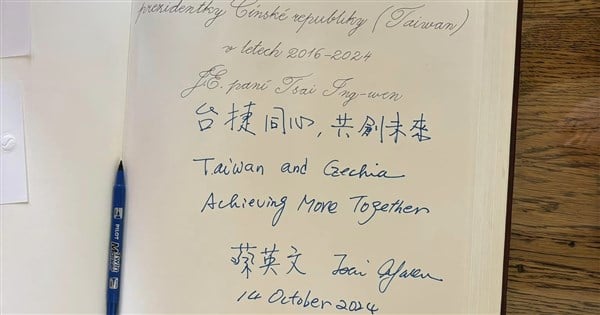 prezidentky Čínské republiky (Taiwan)
v letech 2016-2024
J.E. paní Tsai Ing-wen
台捷同心，共創未來
Taiwan and Czechia
Achieving More Together
蔡英文 Tsai Ingwen
14 October 2024
PILOT